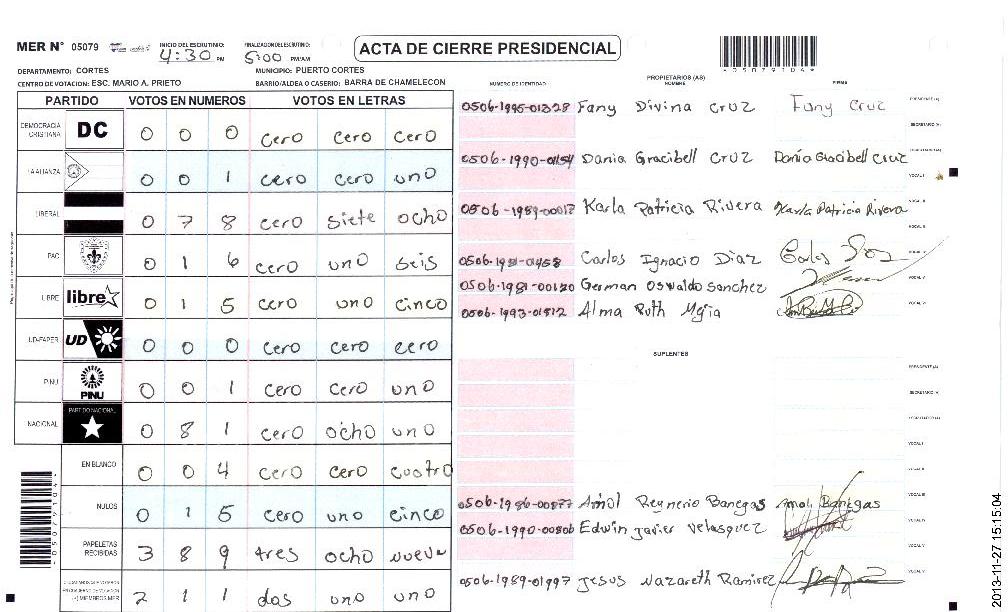 MER N° 05079 INICIO DEL ESCRUTINIO: 4:30 PM FINALIZACION DEL ESCRUTINIO: 5:00 PM/AM ACTA DE CIERRE PRESIDENCIAL
DEPARTAMENTO: CORTES MUNICIPIO: PUERTO CORTES
CENTRO DE VOTACION: ESC. MARIO A. PRIETO BARRIO/ALDEA O CASERIO: BARRA DE CHAMELECON
PARTIDO VOTOS EN NUMEROS VOTOS EN LETRAS
DEMOCRACIA CRISTIANA DC 0 0 0 cero cero cero
LA ALIANZA 0 0 1 cero cero uno
LIBERAL 0 7 8 cero siete ocho
PAC 0 1 6 cero uno seis
LIBRE libre 0 1 5 cero uno cinco
UD-FAPER UD 0 0 0 cero cero cero
PINU PINU 0 0 1 cero cero uno
NACIONAL PARTIDO NACIONAL 0 8 1 cero ocho uno
EN BLANCO 0 0 4 cero cero cuatro
NULOS 0 1 5 cero uno cinco
PAPELETAS RECIBIDAS 3 8 9 tres ocho nueve
2 1 1 dos uno uno
PROPIETARIOS (AS)
NUMERO DE IDENTIDAD NOMBRE FIRMA
0506-1995-01328 Fany Divina Cruz Fany Cruz
0506-1990-01154 Dania Gracibell Cruz Dania Gracibell Cruz
0506-1989-00017 Karla Patricia Rivera Karla Patricia Rivera
Carlos Ignacio Diaz
0506-1981-00180 German Oswaldo Sanchez
0506-1993-01512 Alma Ruth
SUPLENTES
0506-1986-00877 Reynerio Banegas Banegas
0506-1990-00806 Edwin Javier Velasquez
0506-1989-01997 Jesus Nazareth Ramirez
2013-11-27 15:15:04